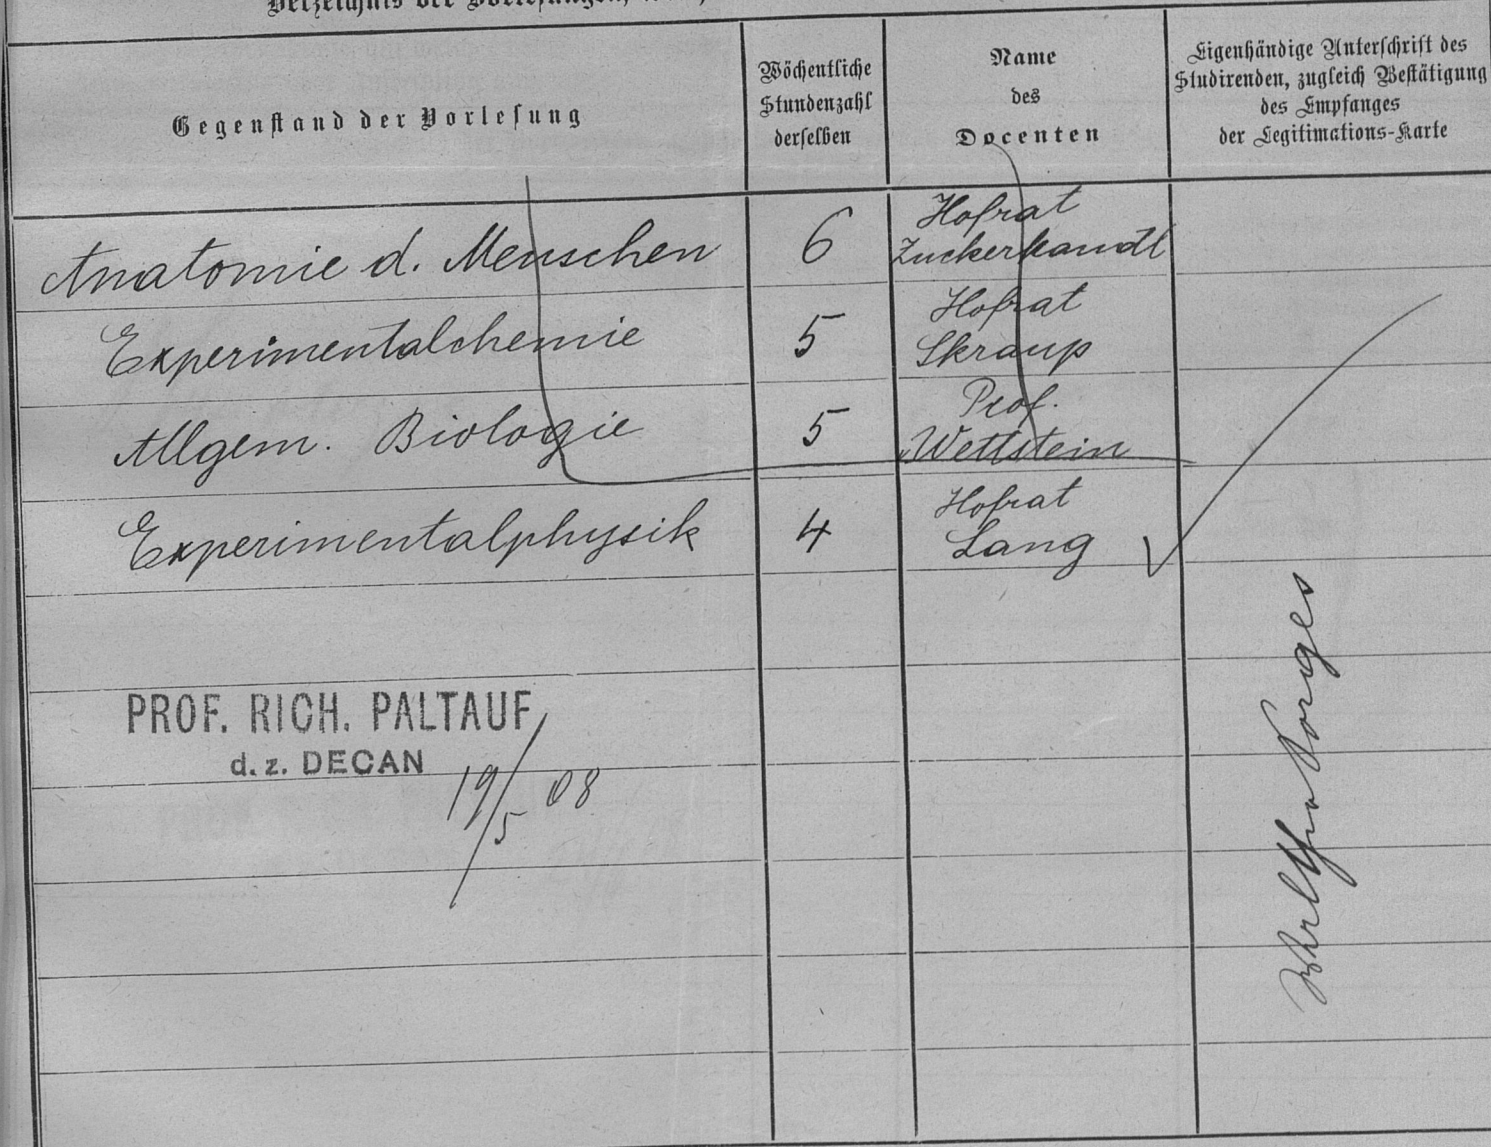 Verzeichnis der Vorlesungen,
Gegenstand der Vorlesung
Wöchentliche
Stundenzahl
derselben
Name
des
Docenten
Eigenhändige Unterschrift des
Studirenden, zugleich Bestätigung
des Empfanges
der Legitimations-Karte
Anatomie d. Menschen 6 Hofrat
Zuckerkandl
Experimentalchemie 5 Hofrat
Skraup
Allgem. Biologie 5 Prof.
Wettstein
Experimentalphysik 4 Hofrat
Lang
PROF. RICH. PALTAUF
d. z. DECAN
19/5 08
Porges